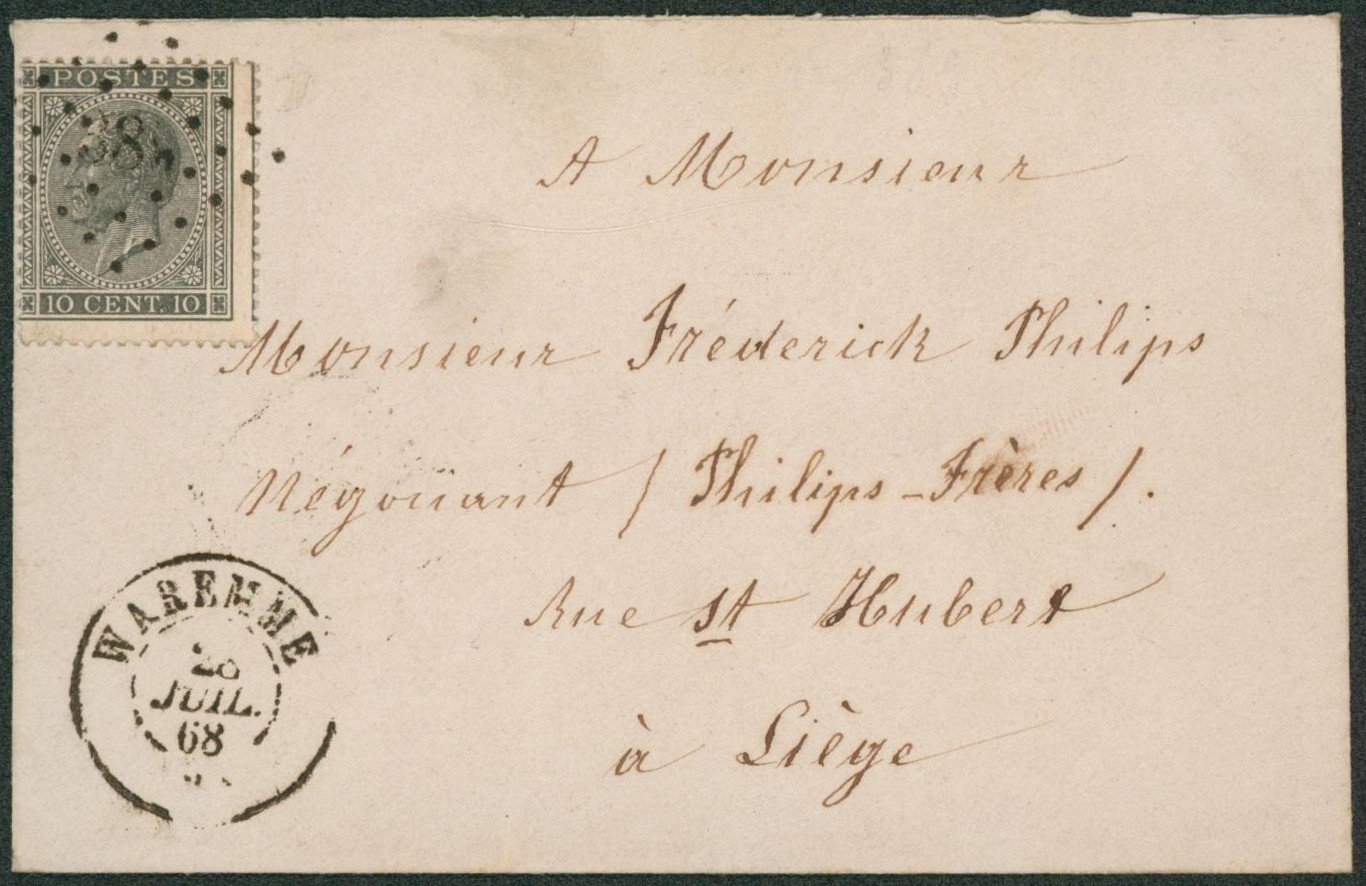 POSTES
10 CENT. 10
A Monsieur
Monsieur Fréderick Philips
Négociant (Philips-Frères).
Rue St Hubert
à Liège
WAREMME
28
JUIL.
68